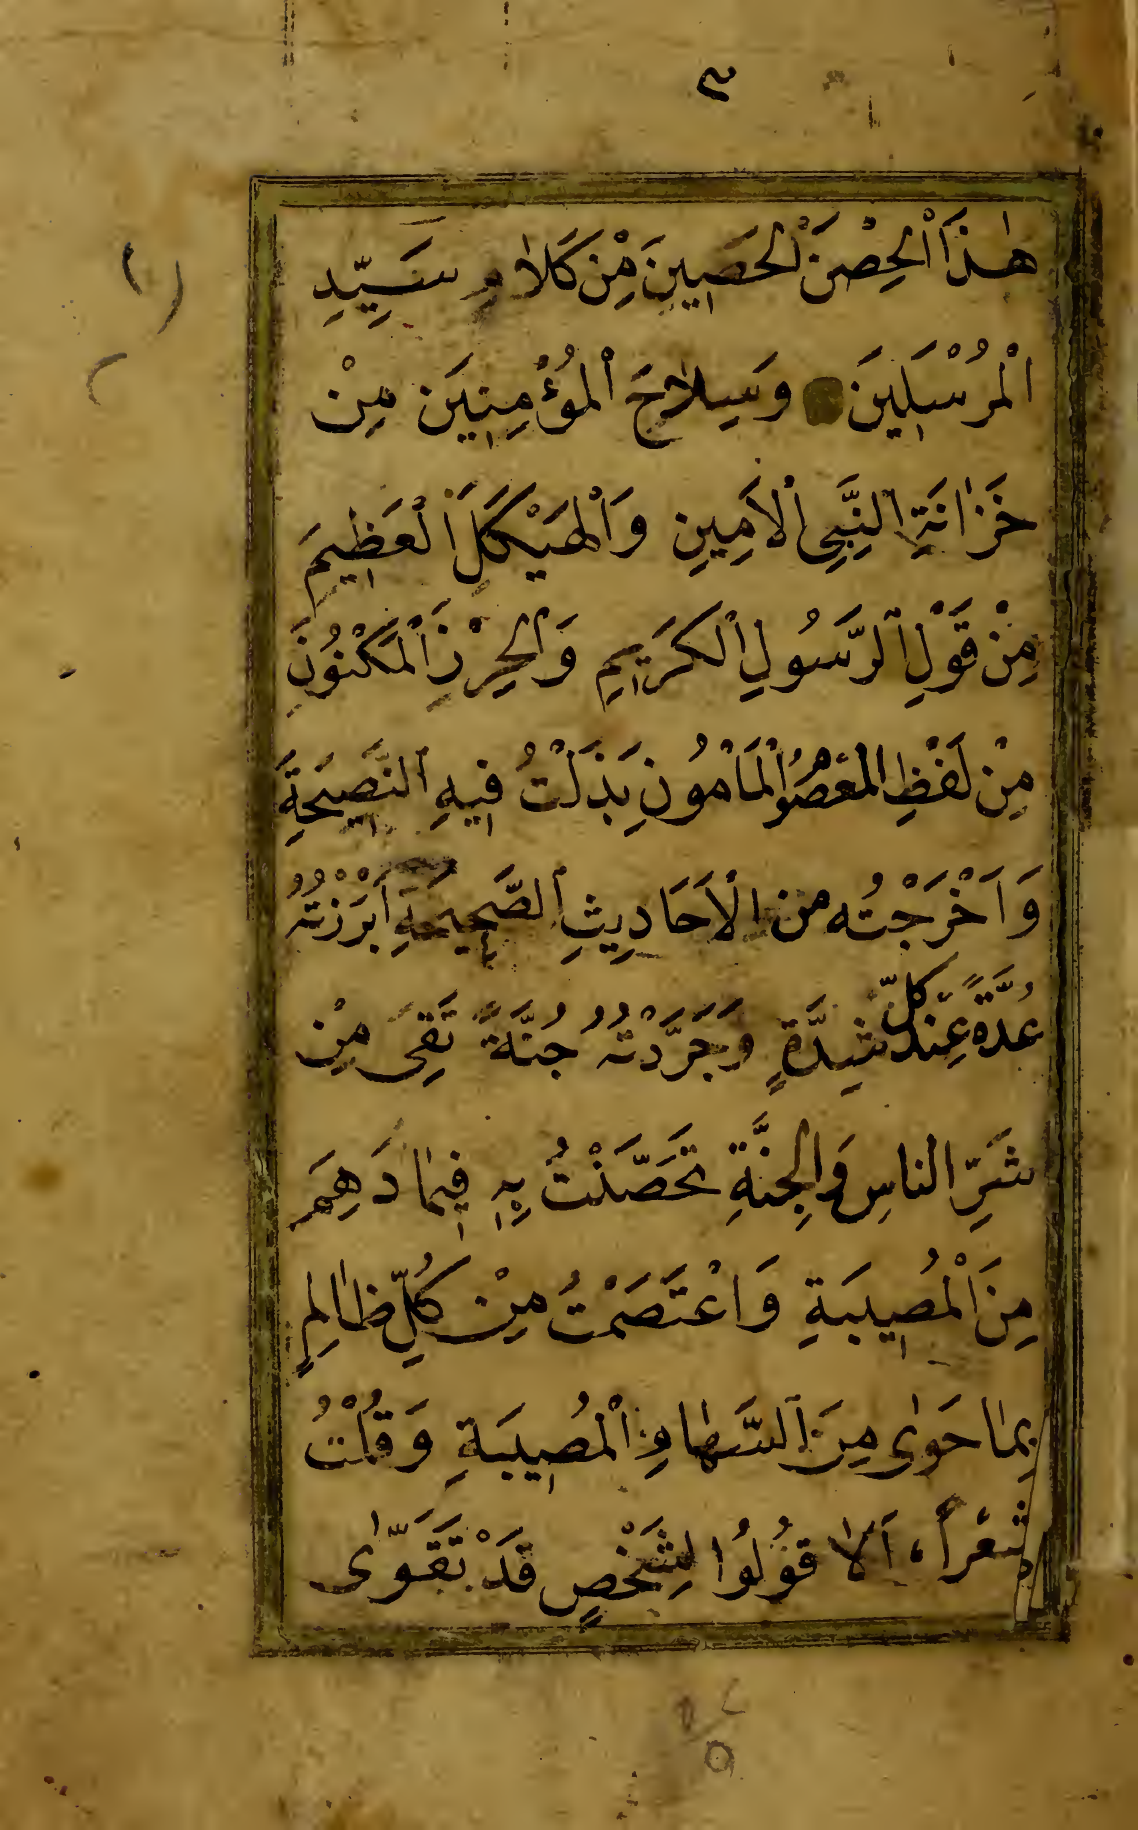 ٣
هٰذَا الْحِصْنَ الْحَصِينَ مِنْ كَلَامِ سَيِّدِ
الْمُرْسَلِينَ وَسِلَاحَ الْمُؤْمِنِينَ مِنْ
خَزَانَةِ النَّبِيِّ الْأَمِينِ وَالْهَيْكَلَ الْعَظِيمَ
مِنْ قَوْلِ الرَّسُولِ الْكَرِيمِ وَالْحِرْزَ الْمَكْنُونَ
مِنْ لَفْظِ الْمَعْصُومِ الْمَأْمُونِ بَذَلْتُ فِيهِ النَّصِيحَةَ
وَاَخْرَجْتُه من الْاَحَادِيثِ الصَّحِيحَةِ اَبْرَزْتُهُ
عُدَّةً عِنْدَ كُلِّ شِدَّةٍ وَجَرَّدْتُهُ جُنَّةً تَقِى مِنْ
شَرِّ الناسِ وَالْجِنَّةِ تَحَصَّنْتُ بِهِ فِيمَا دَهِمَ
مِنَ الْمُصِيبَةِ وَاعْتَصَمْتُ مِنْ كُلِّ ظَالِمٍ
بِمَا حَوٰى مِنَ السِّهَامِ الْمُصِيبَةِ وَقُلْتُ
شعْراً، اَلَا قُولُوا لِشَخْصٍ قَدْ تَقَوّٰى